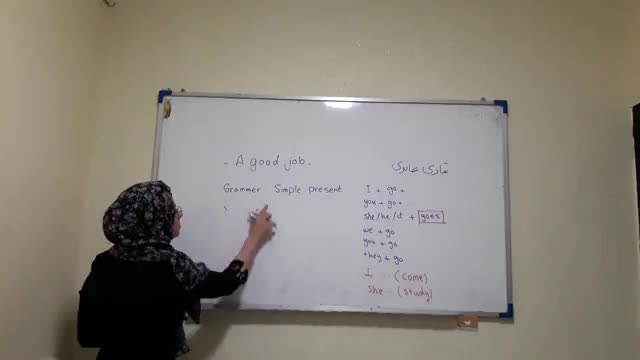 - A good job.
Grammer Simple present
شادی عابدی
I + go +
you + go +
she/he/it + goes
we + go
you + go
they + go
I ... (come)
she ... (study)